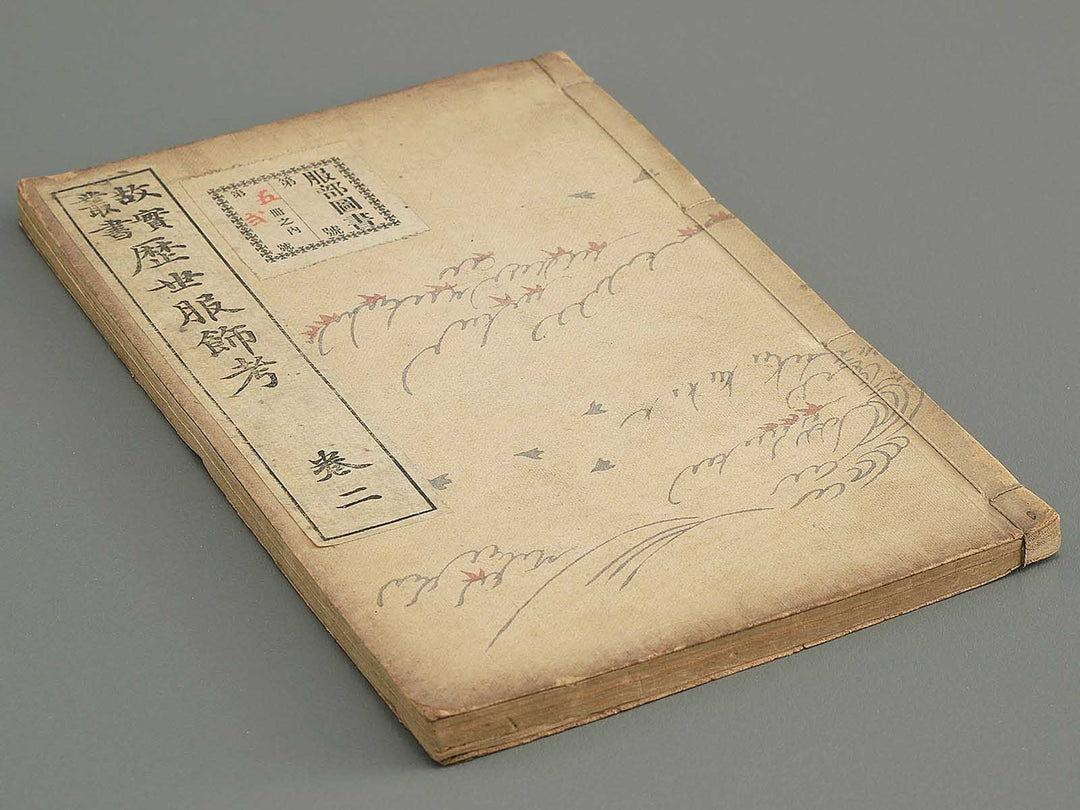 故實
叢書
歷世服飾考
卷二
服部圖書
第 號
五冊之内
第弐號